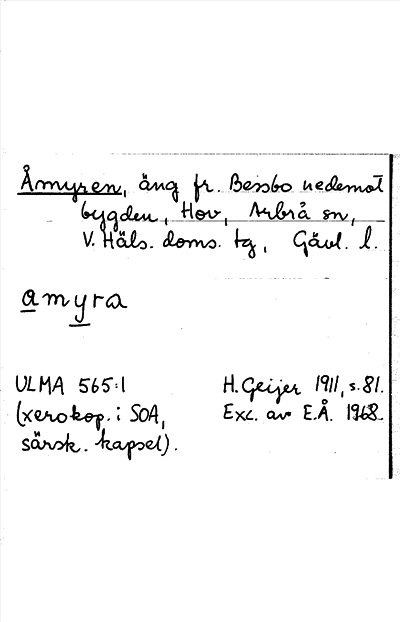 Åmyren, äng fr. Bessbo nedemot
bygden, Hov, Arbrå sn,
V. Häls. doms. tg, Gävl. l.
amyra
ULMA 565:1 H. Geijer 1911, s. 81.
(xerokop. i SOA, Exc. av E.Å. 1968.
särsk. kapsel).